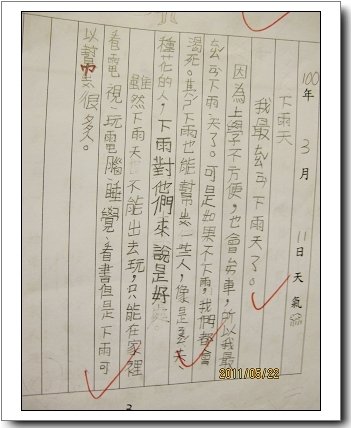 100年3月11日天氣
下雨天
我最ㄊㄠˇ下雨天了。
因為上學不方便，也會塞車，所以我最
ㄊㄠˇ下雨天了。可是如果不下雨，我們都會
渴死。其下雨也能幫忙一些人，像是農夫、
種花的人，下雨對他們來說是好
雖然下雨天不能出去玩，只能在家裡
看電視、玩電腦、睡覺、看書但是下雨可
以幫忙很多。
2011/05/22